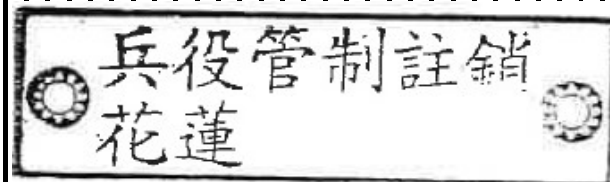 兵役管制註銷
花蓮